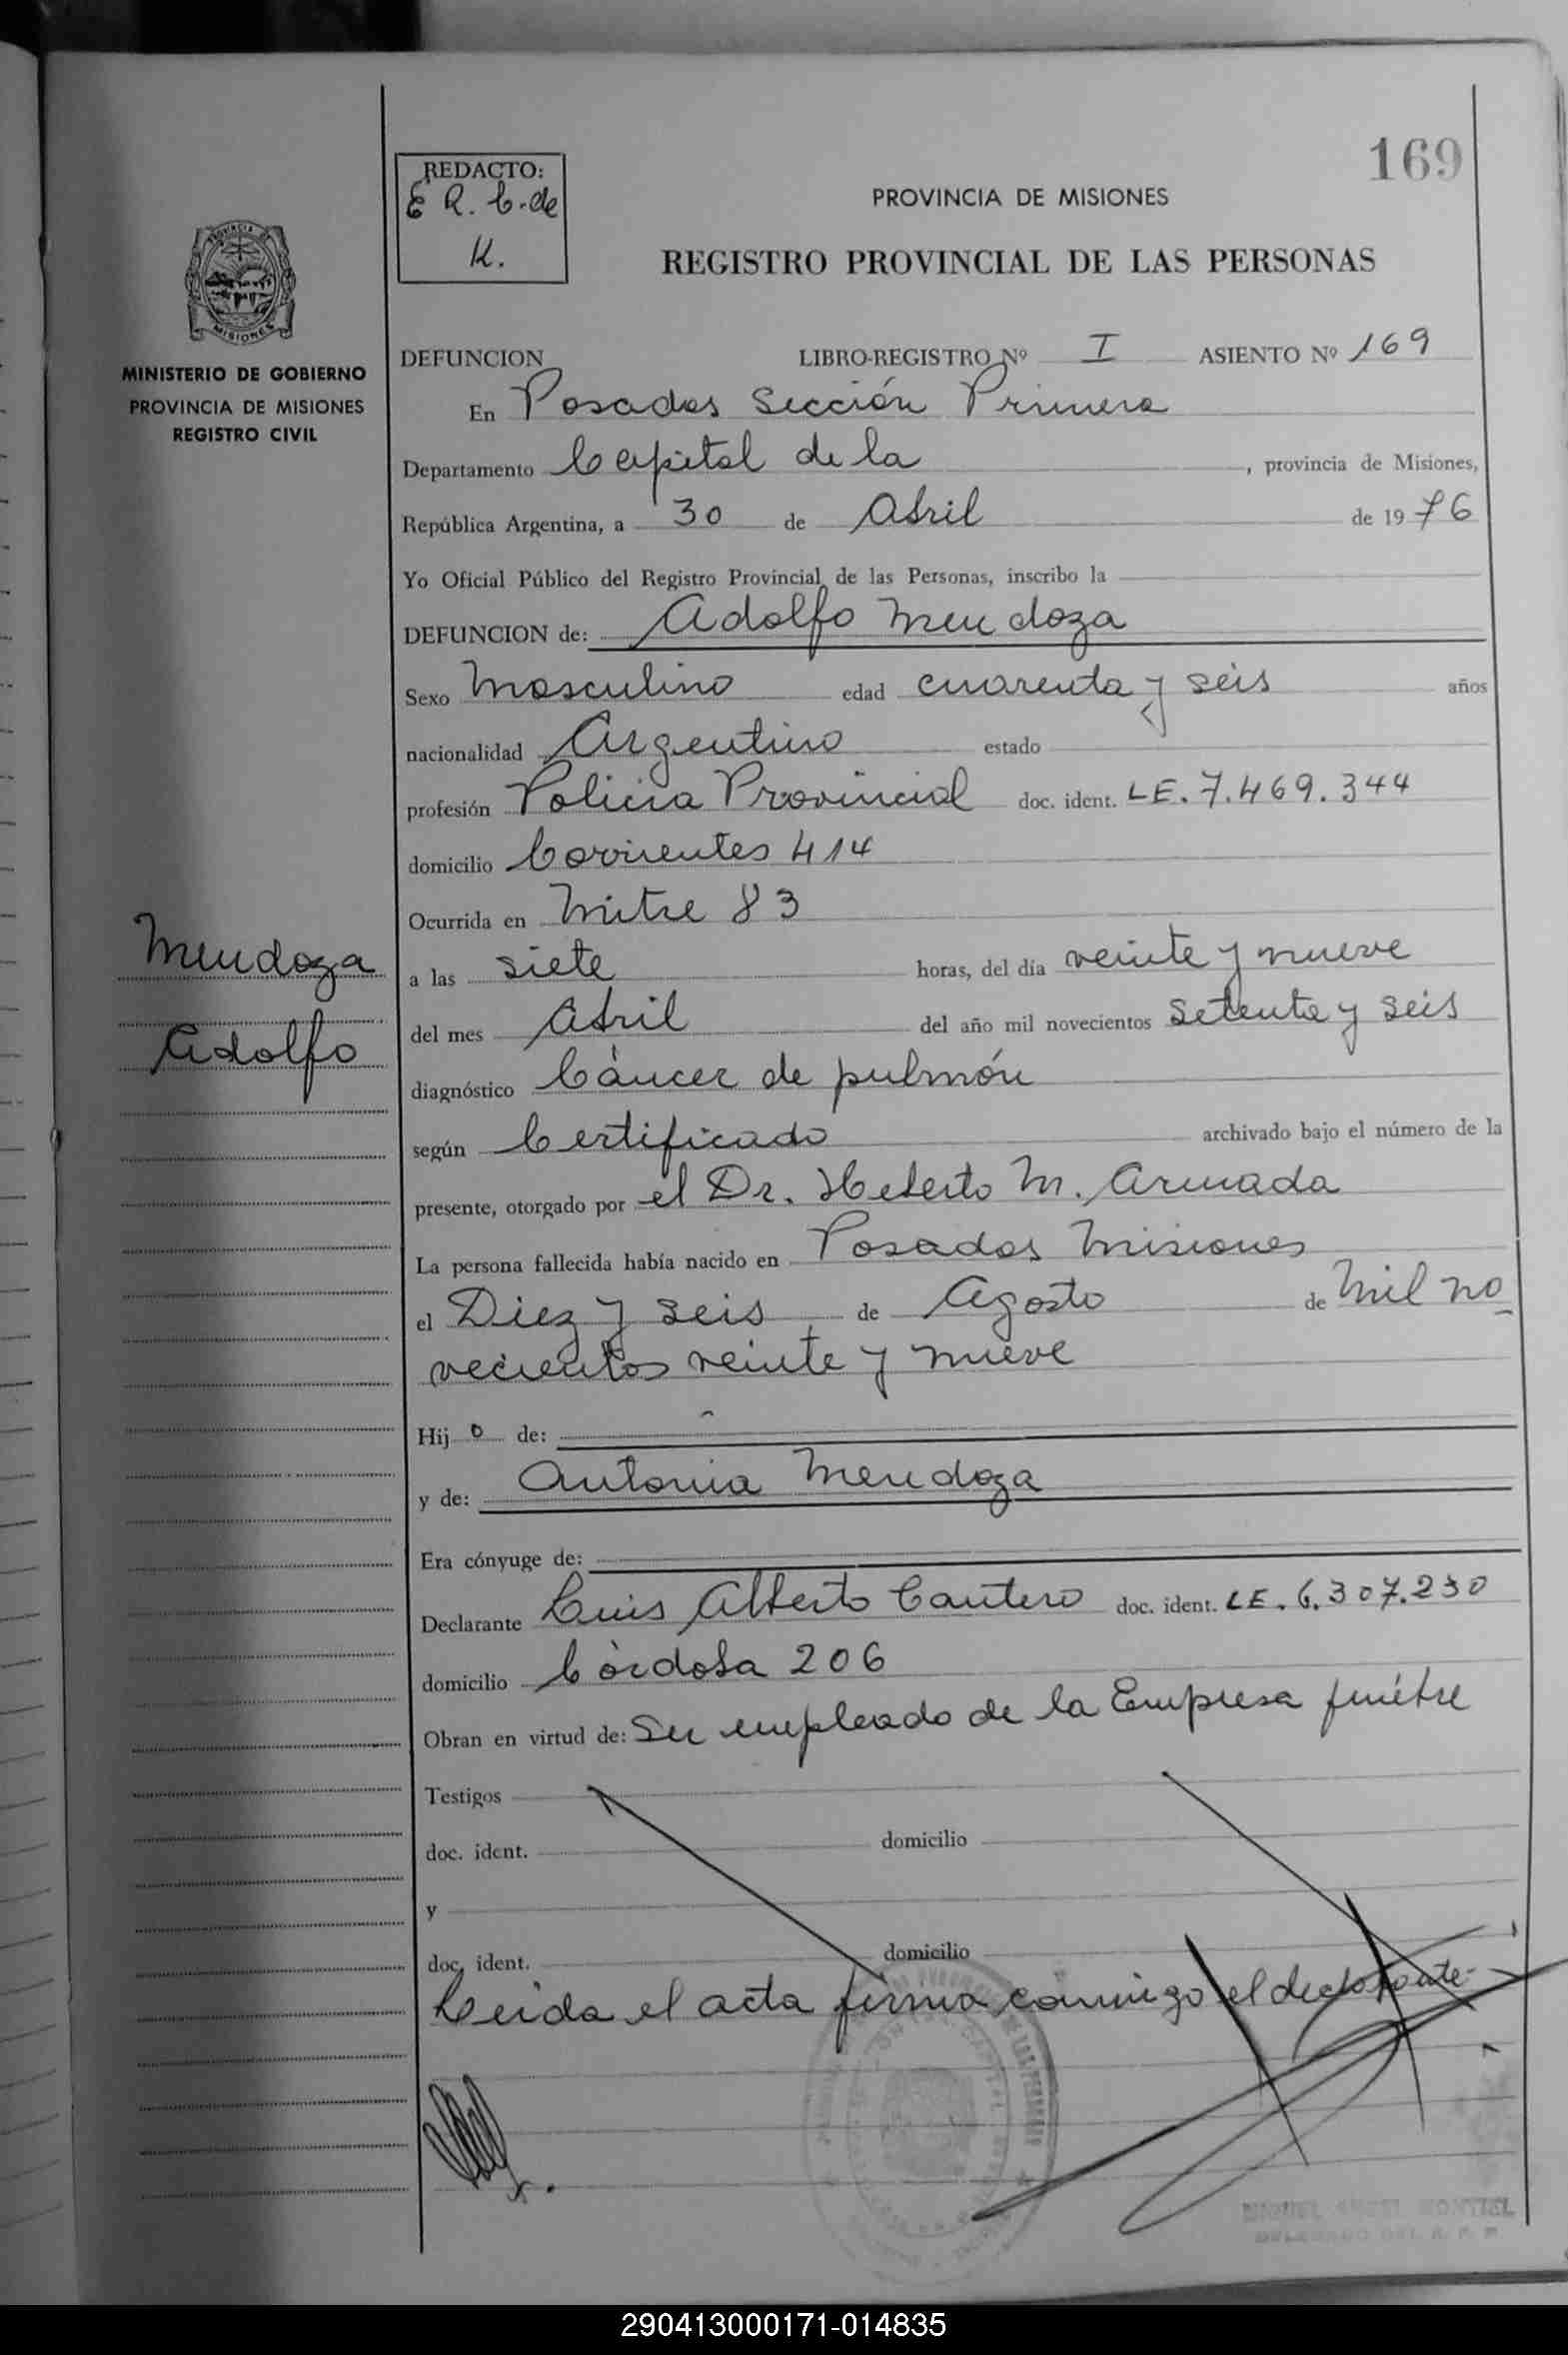 169
REDACTO:
E R. C. de
K.
PROVINCIA DE MISIONES
REGISTRO PROVINCIAL DE LAS PERSONAS
PROVINCIA DE
MISIONES
MINISTERIO DE GOBIERNO
PROVINCIA DE MISIONES
REGISTRO CIVIL
DEFUNCION LIBRO-REGISTRO Nº I ASIENTO Nº 169
En Posadas Sección Primera
Departamento Capital de la , provincia de Misiones,
República Argentina, a 30 de Abril de 1976
Yo Oficial Público del Registro Provincial de las Personas, inscribo la
DEFUNCION de: Adolfo Mendoza
Sexo Masculino edad cuarenta y seis años
nacionalidad Argentino estado
profesión Policia Provincial doc. ident. LE. 7.469.344
domicilio Corrientes 414
Ocurrida en Mitre 83
Mendoza
Adolfo
a las siete horas, del día veinte y nueve
del mes Abril del año mil novecientos setenta y seis
diagnóstico Cáncer de pulmón
según Certificado archivado bajo el número de la
presente, otorgado por el Dr. Heberto M. Armada
La persona fallecida había nacido en Posadas Misiones
el Diez y seis de Agosto de Mil no
vecientos veinte y nueve
Hijo de:
y de: Antonia Mendoza
Era cónyuge de:
Declarante Luis Alberto Cantero doc. ident. LE. 6.307.230
domicilio Córdoba 206
Obran en virtud de: Ser empleado de la Empresa funébre
Testigos
doc. ident. domicilio
y
doc. ident. domicilio
Leida el acta firma conmigo el declarante-
MIGUEL ANGEL MONTIEL
DELEGADO DEL R. P. P.
290413000171-014835